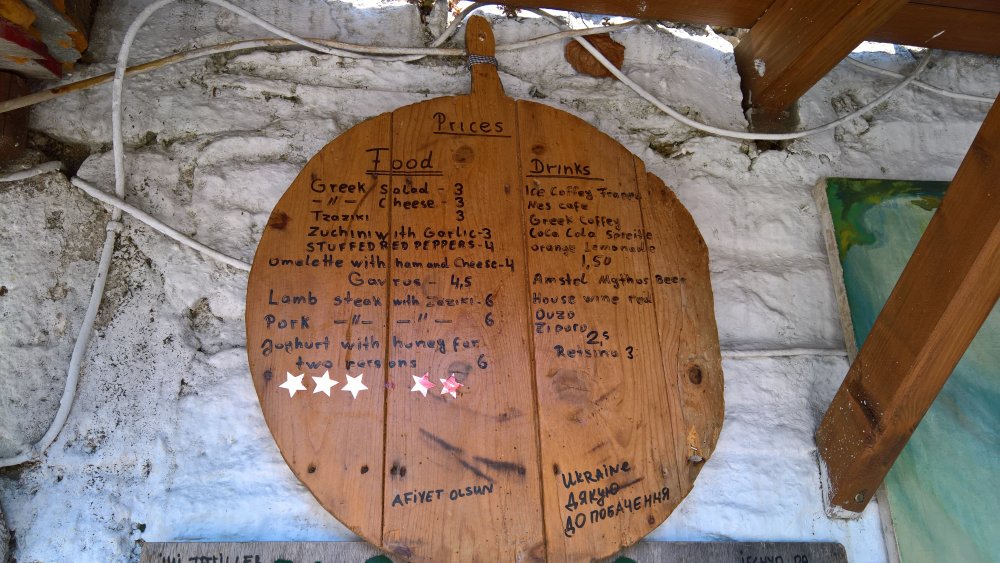 Prices
Food
Greek salad - 3
–〃– Cheese - 3
Tzaziki 3
Zuchini with Garlic - 3
STUFFED RED PEPPERS - 4
omelette with ham and Cheese - 4
Gavros - 4,5
Lamb steak with Zaziki - 6
Pork –〃– –〃– 6
Joghurt with honey for
two persons 6
Drinks
Ice Coffey Frappe
Nes cafe
Greek Coffey
Coca Cola Spreite
orange Lemonade
1,50
Amstel Mythos Beer
House wine red
Ouzo
Ziporo
2,5
Retsina 3
AFiYET OLSUN
UKRAiNE
ДЯКУЮ
ДО ПОБАЧЕННЯ